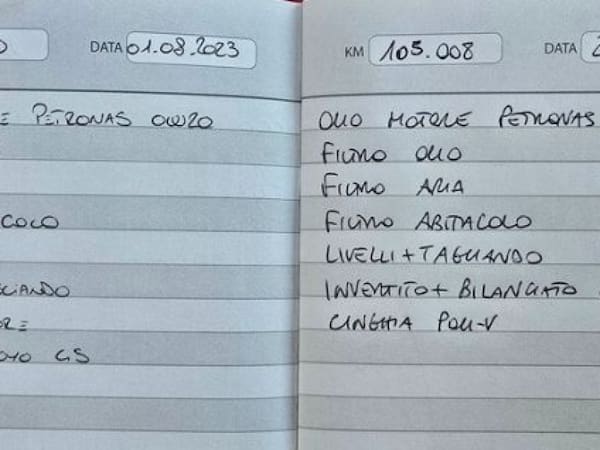 DATA 01.08.2023
PETRONAS 0W20
COLO
GLIANDO
RE
GS
KM 105.008 DATA 2
OLIO MOTORE PETRONAS
FILTRO OLIO
FILTRO ARIA
FILTRO ABITACOLO
LIVELLI + TAGLIANDO
INVERTITO + BILANCIATO
CINGHIA POLI-V